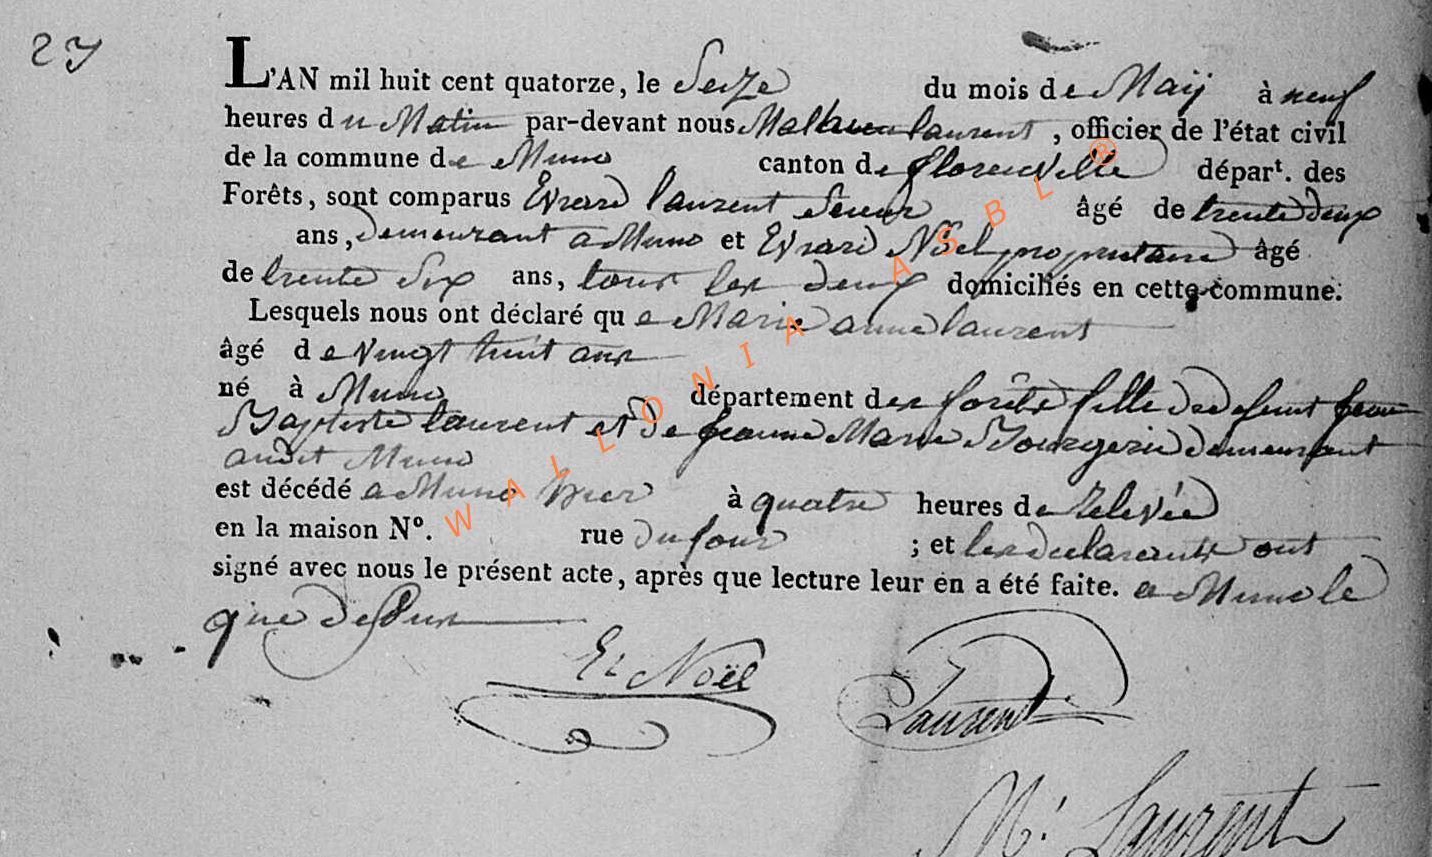 27
L'AN mil huit cent quatorze, le Seize du mois de Maÿ à neuf
heures du Matin par-devant nous Mathieu laurent, officier de l'état civil
de la commune de Muno canton de florenville départ. des
Forêts, sont comparus Evrard laurent âgé de trente deux
ans, demeurant a Muno et Evrard Nöel proprietaire âgé
de trente six ans, tous les deux domiciliés en cette commune.
Lesquels nous ont déclaré que Marie anne laurent
âgé de vingt huit ans
né à Muno département des forêts fille de defunt jean
Baptiste laurent et de jeanne Marie Bourgerie demeurant
audit Muno
est décédé a Muno hier à quatre heures de relevée
en la maison N°. rue du four ; et les declarants ont
signé avec nous le présent acte, après que lecture leur en a été faite. a Muno le
que dessus
Ev Noël
Laurent
M. Laurent
WALLONIA ASBL ®